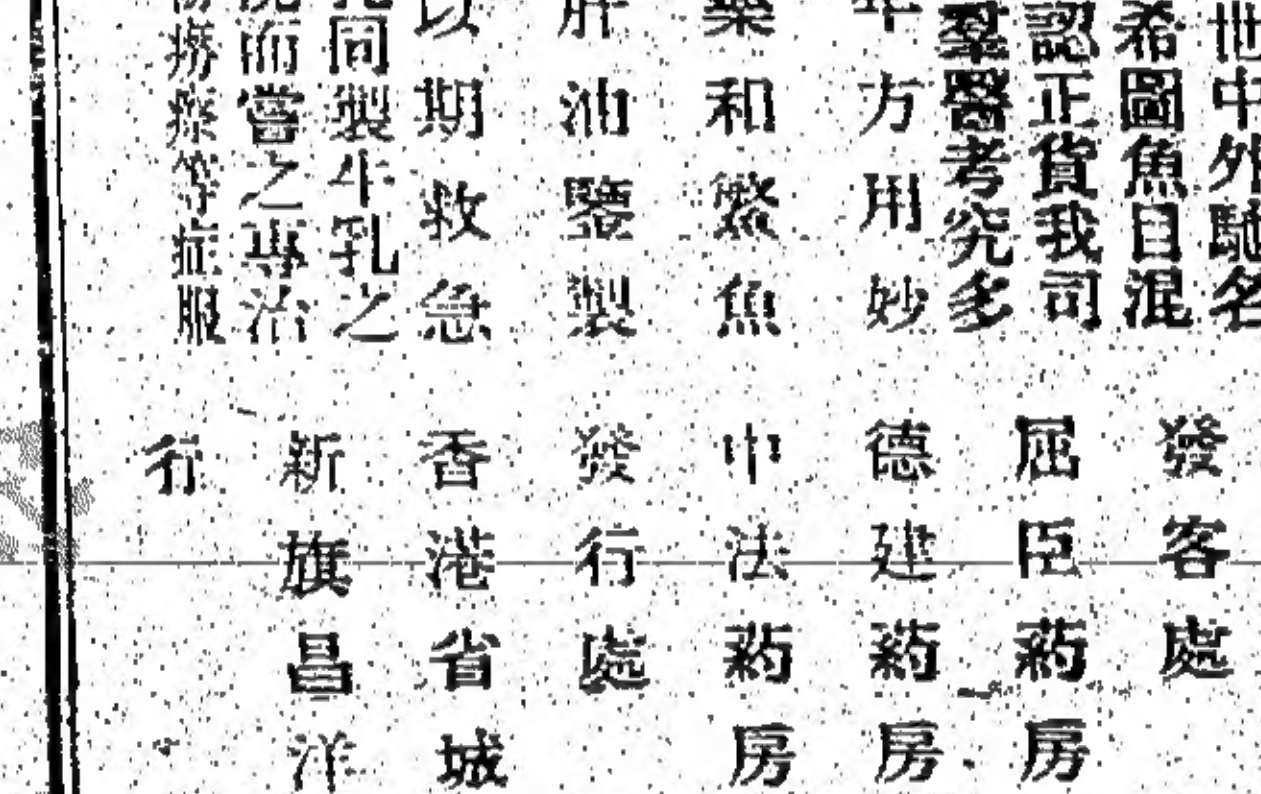 世中外馳名
希圖魚目混
認正貨我司
羣醫考究多
年方用妙
藥和魚
肝油製
以期救急
同製牛乳之
而嘗之專治
癆瘵等症服
發客處
屈臣葯房
德建葯房
中法葯房
發行處
香港省城
新旗昌洋
行